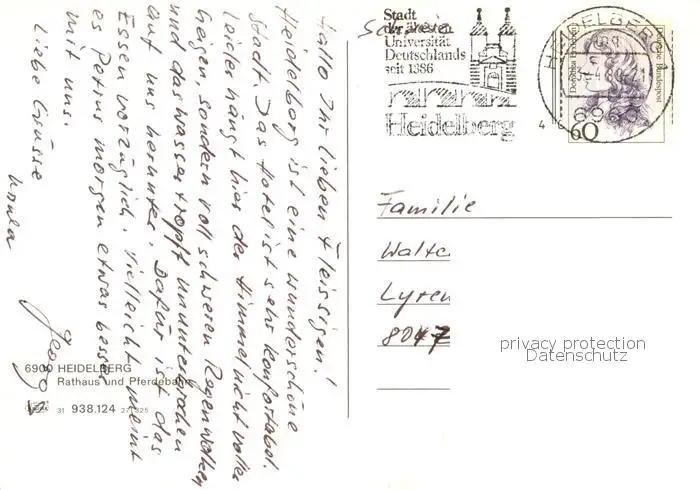 Hallo Ihr lieben Fleissigen!
Heidelberg ist eine wunderschöne
Stadt. Das Hotel ist sehr konfortabel.
Leider hängt hier der Himmel nicht voller
Geigen sondern voll schweren Regenwolken
und das Wasser tropft ununterbrochen
auf uns herunter. Dafür ist das
Essen vorzüglich. Vielleicht meint
es Petrus morgen etwas besser
mit uns.
Liebe Grüsse
Ursula
Georg
6900 HEIDELBERG
Rathaus und Pferdebahn
31 938.124 271325
Schweiz
Stadt
der ältesten
Universität
Deutschlands
seit 1386
Heidelberg
HEIDELBERG
6900
Dorothea Erxleben
Deutsche Bundespost
60
Familie
Walte
Lyren
8047
privacy protection
Datenschutz